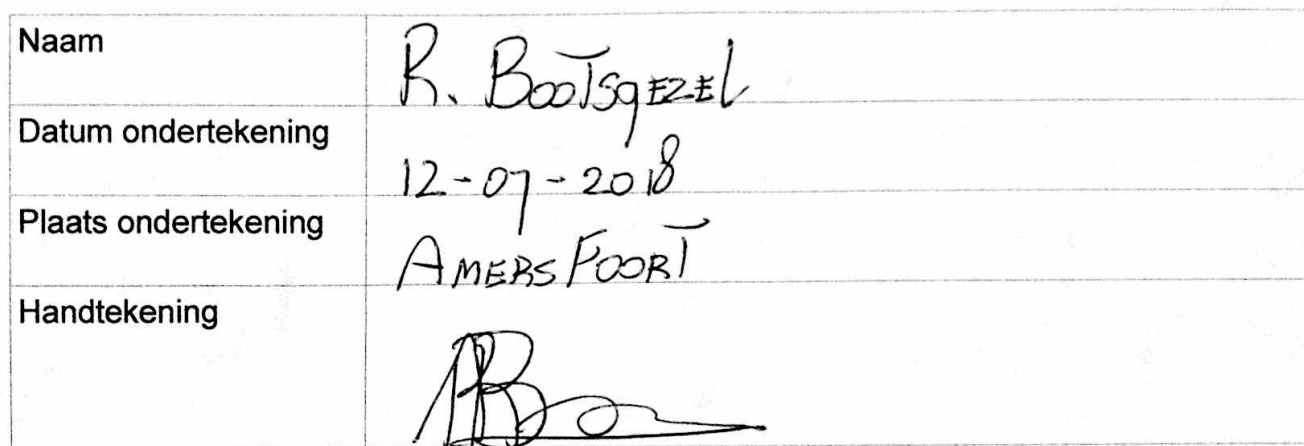 Naam R. Bootsgezel
Datum ondertekening 12-07-2018
Plaats ondertekening AMERSFOORT
Handtekening